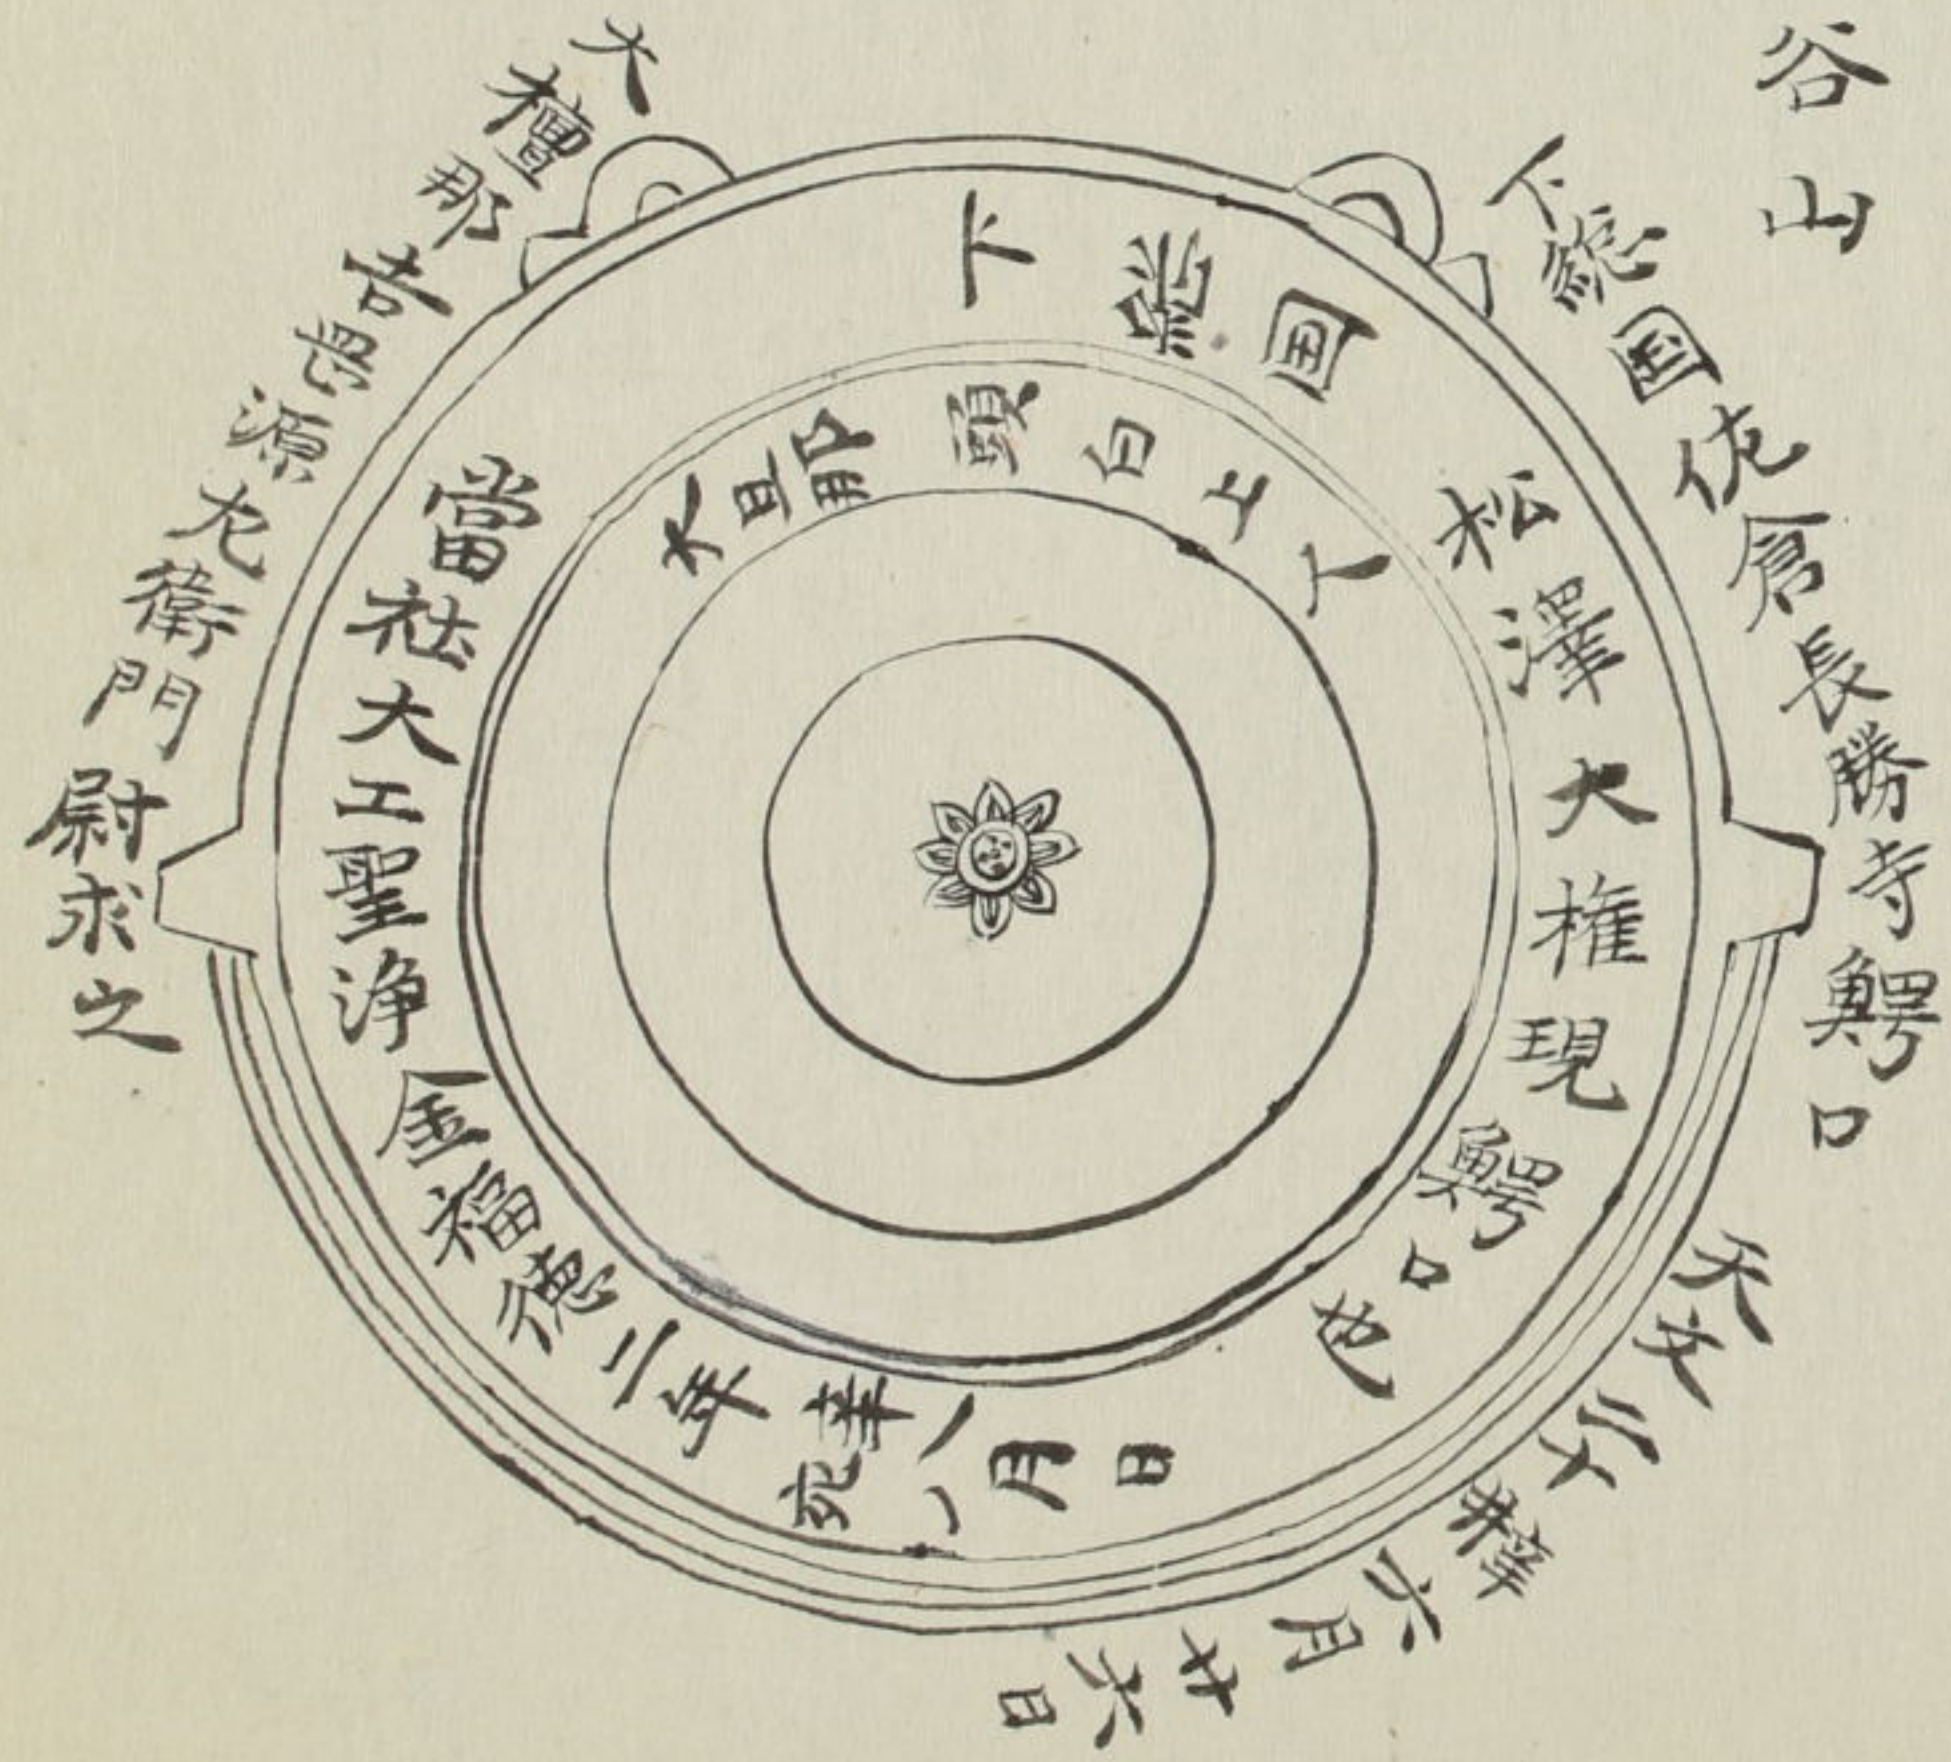 谷山
下総国佐倉長勝寺鰐口
天文二十辛亥六月廿六日
大檀那
源左衛門尉求之
下総国松澤大権現鰐口也
當社大工聖浄金福徳二年辛亥八月日
大旦那頭白上人